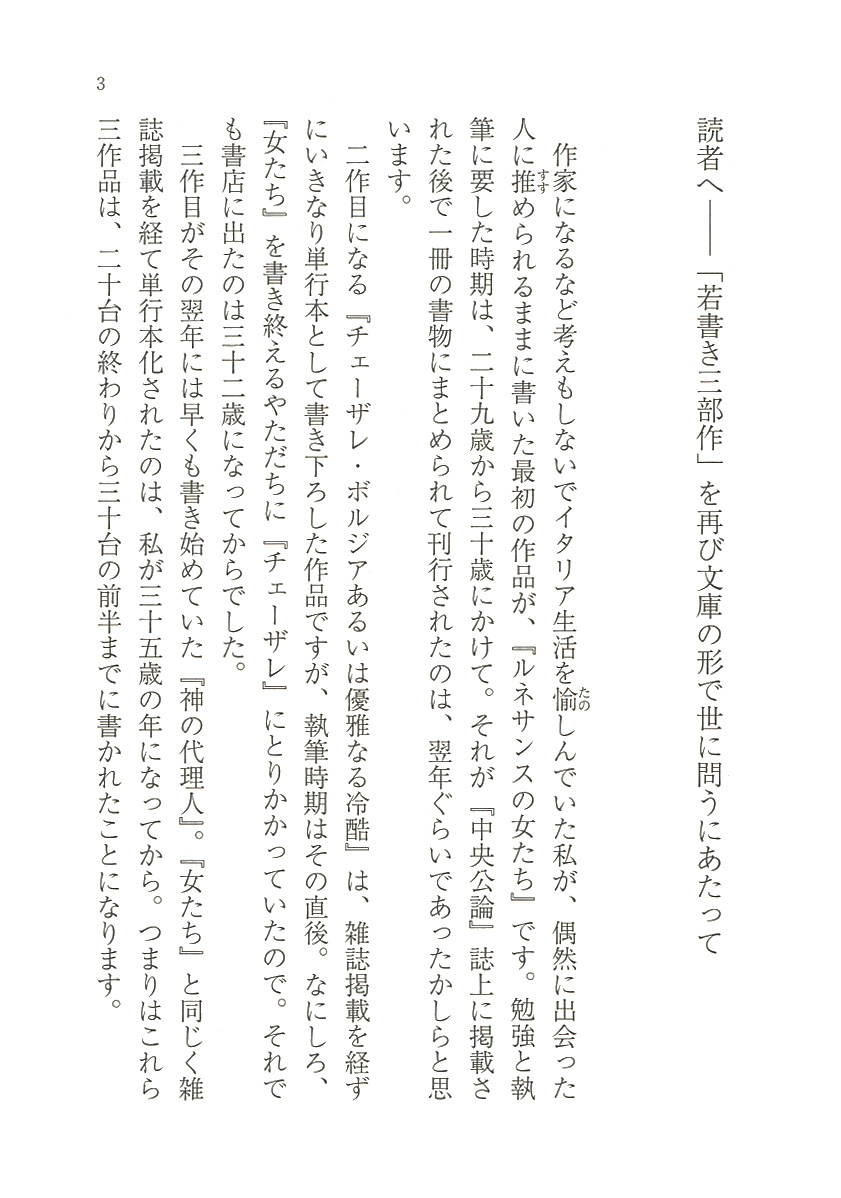 読者へ――「若書き三部作」を再び文庫の形で世に問うにあたって
作家になるなど考えもしないでイタリア生活を愉しんでいた私が、偶然に出会った
人に推められるままに書いた最初の作品が、『ルネサンスの女たち』です。勉強と執
筆に要した時期は、二十九歳から三十歳にかけて。それが『中央公論』誌上に掲載さ
れた後で一冊の書物にまとめられて刊行されたのは、翌年ぐらいであったかしらと思
います。
二作目になる『チェーザレ・ボルジアあるいは優雅なる冷酷』は、雑誌掲載を経ず
にいきなり単行本として書き下ろした作品ですが、執筆時期はその直後。なにしろ、
『女たち』を書き終えるやただちに『チェーザレ』にとりかかっていたので。それで
も書店に出たのは三十二歳になってからでした。
三作目がその翌年には早くも書き始めていた『神の代理人』。『女たち』と同じく雑
誌掲載を経て単行本化されたのは、私が三十五歳の年になってから。つまりはこれら
三作品は、二十台の終わりから三十台の前半までに書かれたことになります。
3